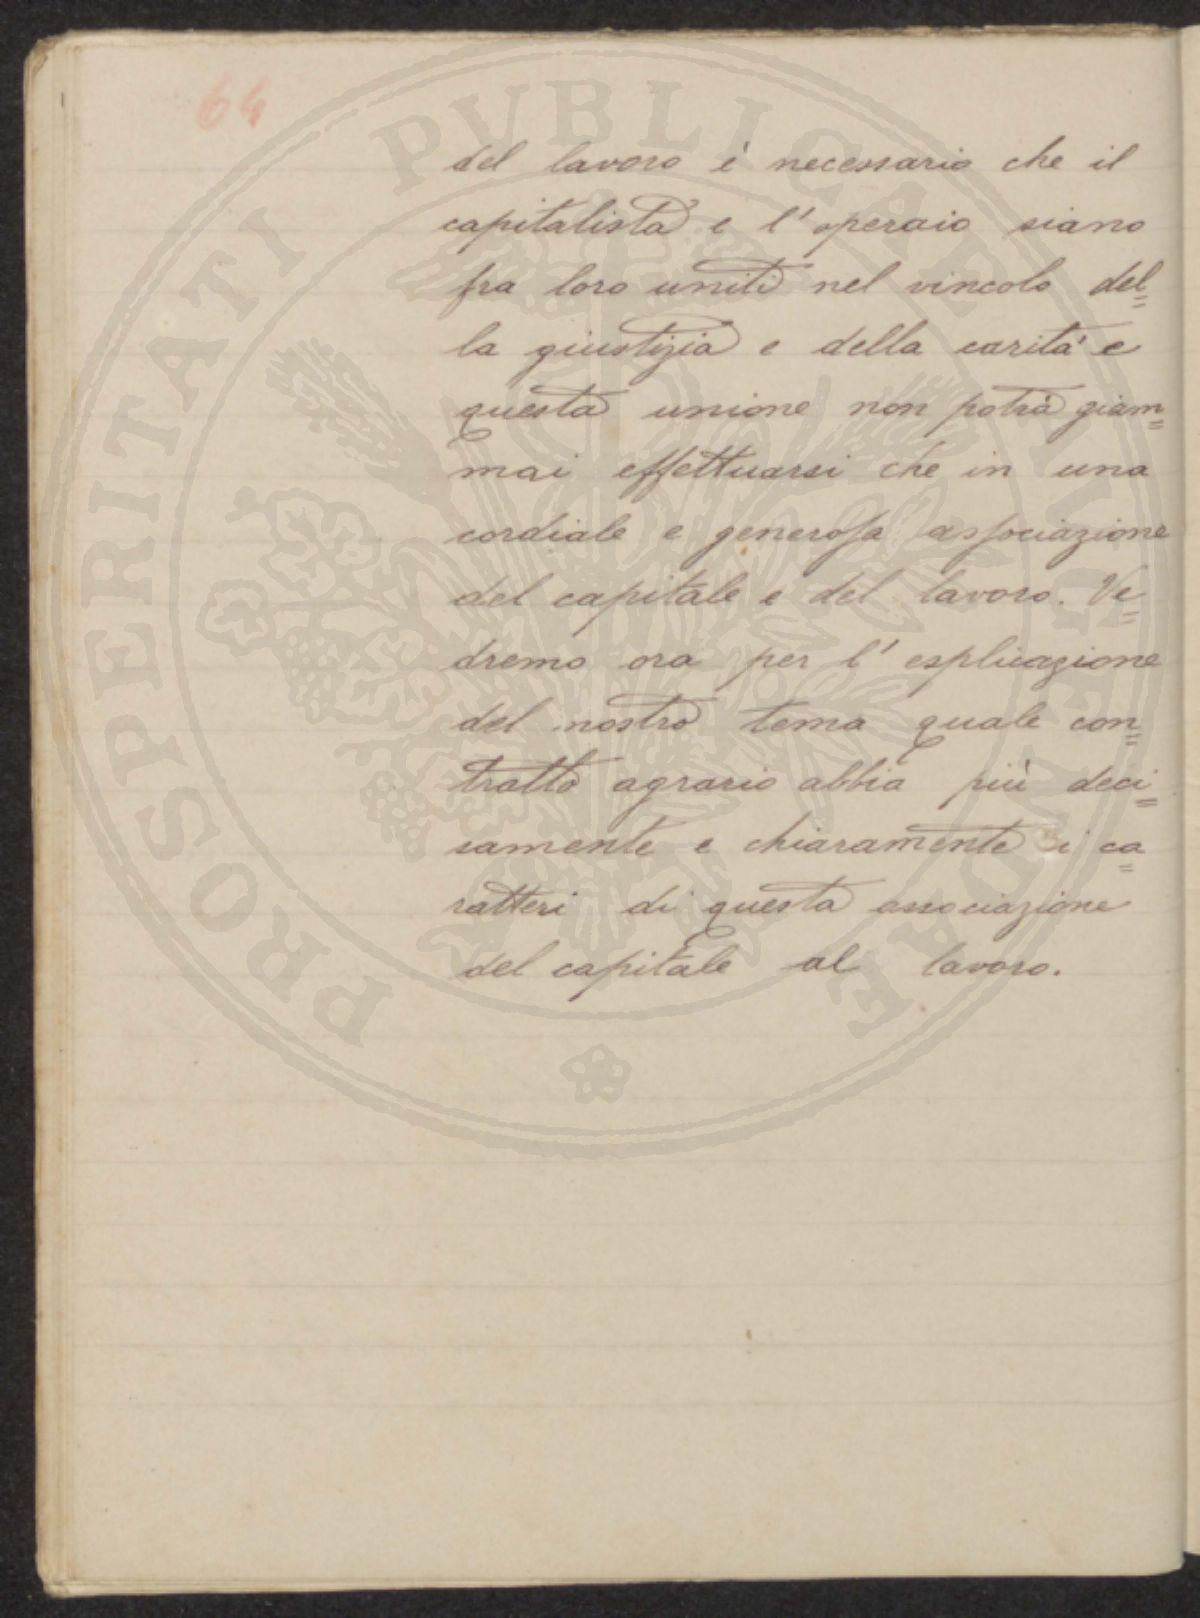 64
del lavoro è necessario che il
capitalista e l'operaio siano
fra loro uniti nel vincolo del=
la giustizia e della carità e
questa unione non potrà giam=
mai effettuarsi che in una
cordiale e generosa associazione
del capitale e del lavoro. Ve=
dremo ora per l'esplicazione
del nostro tema quale con=
tratto agrario abbia più deci=
samente e chiaramente i ca=
ratteri di questa associazione
del capitale al lavoro.
PROSPERITATI PUBLICAE AUGENDAE